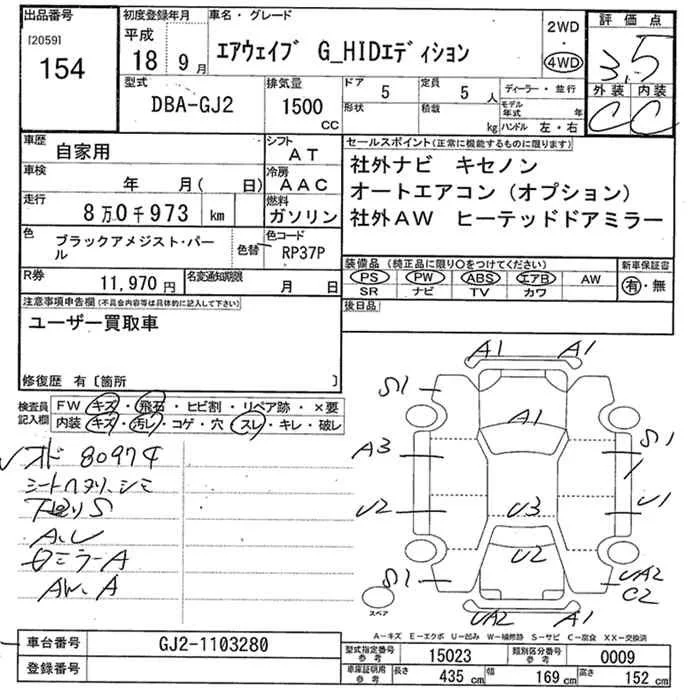 出品番号
[2059]
154
初度登録年月
平成
18 9 月
車名・グレード
エアウェイブ G_HIDエディション
2WD
・
4WD
評価点
3.5
外装 内装
C C
型式
DBA-GJ2
排気量
1500
CC
ドア
5
形状
定員
5 人
積載
kg
ディーラー・並行
モデル年式 年
ハンドル 左・右
車歴
自家用
シフト
AT
車検
年 月( 日)
冷房
AAC
走行
8万0千973 km
燃料
ガソリン
色
ブラックアメジスト・パール
色替
色コード
RP37P
R券
11,970 円
名変通知期限
月 日
セールスポイント(正常に機能するものに限ります)
社外ナビ キセノン
オートエアコン(オプション)
社外AW ヒーテッドドアミラー
装備品 (純正品に限り○をつけてください)
PS PW ABS エアB AW
SR ナビ TV カワ
新車保証書
有・無
後日品
注意事項申告欄(不具合内容等は具体的に記入して下さい)
ユーザー買取車
修復歴 有〔箇所 〕
検査員記入欄
FW キズ・飛石・ヒビ割・リペア跡・×要
内装 キズ・汚レ・コゲ・穴・スレ・キレ・破レ
オド 80974
シートヘタリ、シミ
下廻りS
A、U
ロミラーA
AW、A
A1 A1
S1
A1
A3
S1
U2
U3
U1
U2
S1
UA2
C2
UA2 A1
スペア
A-キズ E-エクボ U-凹み W-補修跡 S-サビ C-腐食 XX-交換済
車台番号
GJ2-1103280
登録番号
型式指定番号 参考
15023
類別区分番号 参考
0009
車庫証明用 参考
長さ 435 cm
幅 169 cm
高さ 152 cm